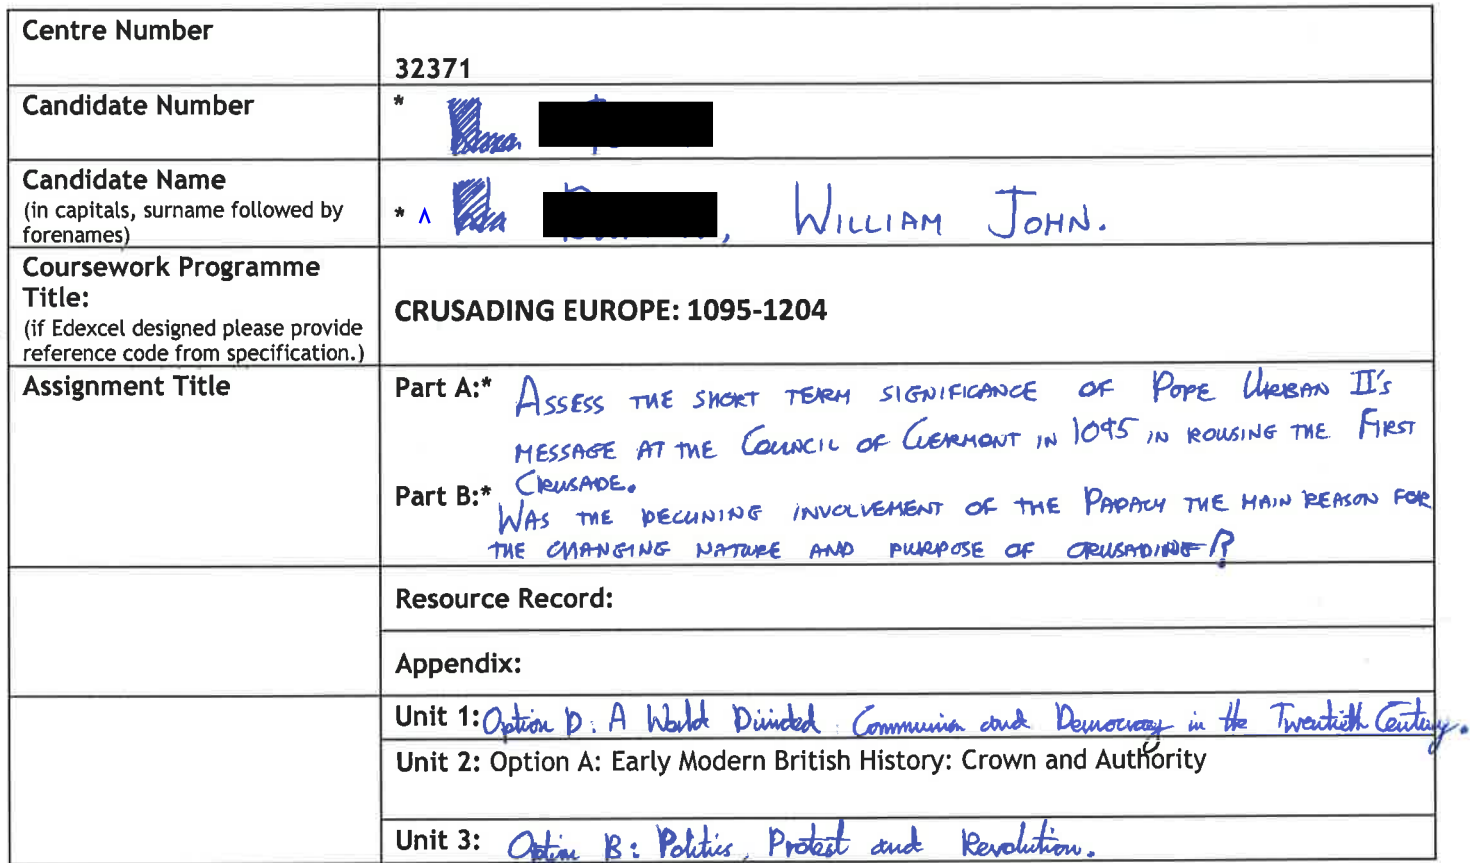 Centre Number
32371
Candidate Number
*
Candidate Name
(in capitals, surname followed by
forenames)
* ^ , WILLIAM JOHN.
Coursework Programme
Title:
(if Edexcel designed please provide
reference code from specification.)
CRUSADING EUROPE: 1095-1204
Assignment Title
Part A:* ASSESS THE SHORT TERM SIGNIFICANCE OF POPE URBAN II'S
MESSAGE AT THE COUNCIL OF CLERMONT IN 1095 IN ROUSING THE FIRST
CRUSADE.
Part B:* WAS THE DECLINING INVOLVEMENT OF THE PAPACY THE MAIN REASON FOR
THE CHANGING NATURE AND PURPOSE OF CRUSADING?
Resource Record:
Appendix:
Unit 1: Option D: A World Divided: Communism and Democracy in the Twentieth Century.
Unit 2: Option A: Early Modern British History: Crown and Authority
Unit 3: Option B: Politics, Protest and Revolution.